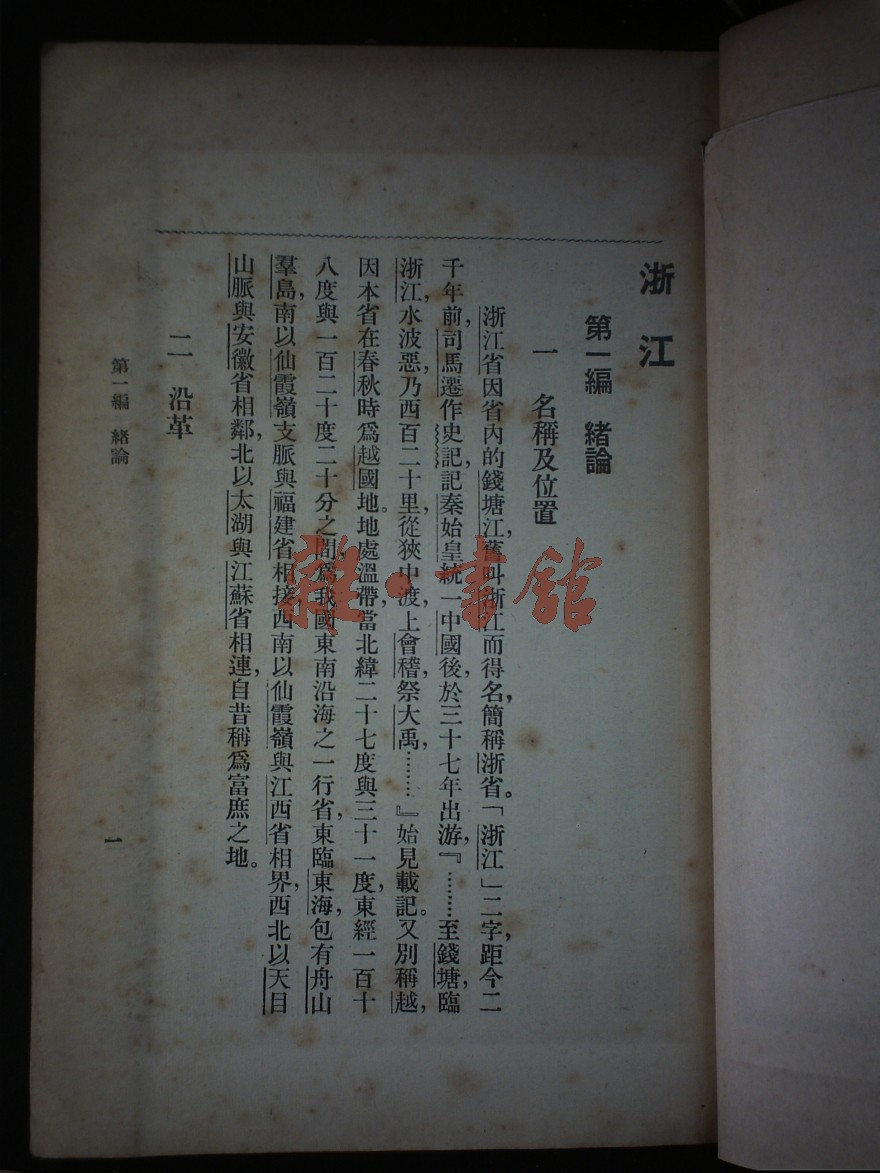 浙江
第一編 緒論
一 名稱及位置
浙江省因省內的錢塘江，舊叫浙江而得名，簡稱浙省。「浙江」二字，距今二
千年前，司馬遷作史記記秦始皇統一中國後，於三十七年出游，『………至錢塘，臨
浙江，水波惡，乃西百二十里，從狹中渡，上會稽，祭大禹，………』始見載記。又別稱越，
因本省在春秋時爲越國地。地處溫帶，當北緯二十七度與三十一度，東經一百十
八度與一百二十度二十分之間，爲我國東南沿海之一行省，東臨東海，包有舟山
羣島，南以仙霞嶺支脈與福建省相接，西南以仙霞嶺與江西省相界，西北以天目
山脈與安徽省相鄰，北以太湖與江蘇省相連，自昔稱爲富庶之地。
二 沿革
第一編 緒論
一
雜·書館